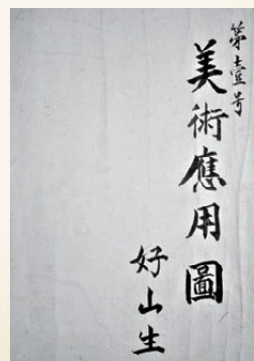 第壹号
美術應用圖
好山生